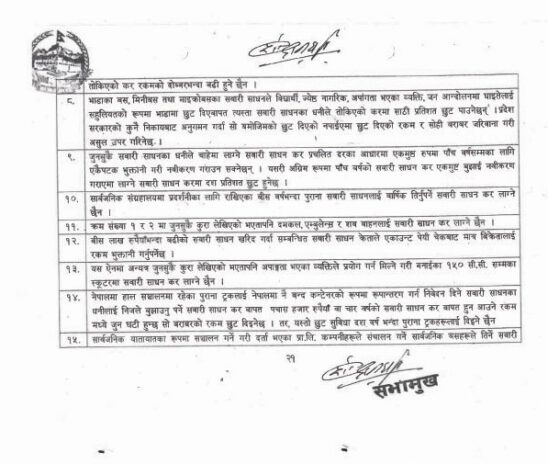 तोकिएको कर रकमको दोब्बरभन्दा बढी हुने छैन ।
८. भाडाका बस, मिनीबस तथा माइक्रोबसका सवारी साधनले विद्यार्थी, ज्येष्ठ नागरिक, अपांगता भएका व्यक्ति, जन आन्दोलनमा घाइतेलाई
सहुलियतको रूपमा भाडामा छुट दिएबापत त्यस्ता सवारी साधनका धनीले तिर्नुपर्ने तोकिएको करमा साठी प्रतिशत छुट पाउनेछन् । प्रदेश
सरकारको कुनै निकायबाट अनुगमन गर्दा सो बमोजिमको छुट दिएको नपाईएमा छुट दिएको रकम र सोही बराबर जरिबाना गरी
असुल उपर गरिनेछ ।
९. जुनसुकै सवारी साधनका धनीले चाहेमा लाग्ने सवारी साधन कर प्रचलित दरका आधारमा एकमुष्ट रुपमा पाँच वर्षसम्मका लागि
एकैपटक भुक्तानी गरी नवीकरण गराउन सक्नेछन् । यसरी अग्रिम रूपमा पाँच वर्षको सवारी साधन कर एकमुष्ट बुझाई नवीकरण
गराएमा लाग्ने सवारी साधन करमा दश प्रतिशत छुट हुनेछ ।
१०. सार्वजनिक संग्रहालयमा प्रदर्शनीका लागि राखिएका बीस वर्षभन्दा पुराना सवारी साधनलाई वार्षिक तिर्नुपर्ने सवारी साधन कर लाग्ने
छैन ।
११. क्रम संख्या १ र २ मा जुनसुकै कुरा लेखिएको भएतापनि दमकल, एम्बुलेन्स र शव बाहनलाई सवारी साधन कर लाग्ने छैन ।
१२. बीस लाख रुपैयाँभन्दा बढीको सवारी साधन खरिद गर्दा सम्बन्धित सवारी साधन क्रेताले एकाउन्ट पेयी चेकबाट मात्र बिक्रेतालाई
रकम भुक्तानी गर्नुपर्नेछ ।
१३. यस ऐनमा अन्यत्र जुनसुकै कुरा लेखिएको भएतापनि अपाङ्गता भएका व्यक्तिले प्रयोग गर्न मिल्ने गरी बनाईका १५० सी.सी. सम्मका
स्कुटरमा सवारी साधन कर लाग्ने छैन ।
१४. नेपालमा हाल सञ्चालनमा रहेका पुराना ट्रकलाई नेपालमा नै बन्द कन्टेनरको रूपमा रूपान्तरण गर्न निवेदन दिने सवारी साधनका
धनीलाई निजले बुझाउनु पर्ने सवारी साधन कर बापत पचास हजार रुपैयाँ वा चार वर्षको सवारी साधन कर बापत हुन आउने रकम
मध्ये जुन घटी हुन्छ सो बराबरको रकम छुट दिइनेछ । तर, यस्तो छुट सुविधा दश वर्ष भन्दा पुराना ट्रकहरूलाई दिइने छैन
१५. सार्वजनिक यातायातका रूपमा सञ्चालन गर्ने गरी दर्ता भएका प्रा.लि. कम्पनीहरूले संचालन गर्ने सार्वजनिक बसहरूले तिर्ने सवारी
२१
सभामुख